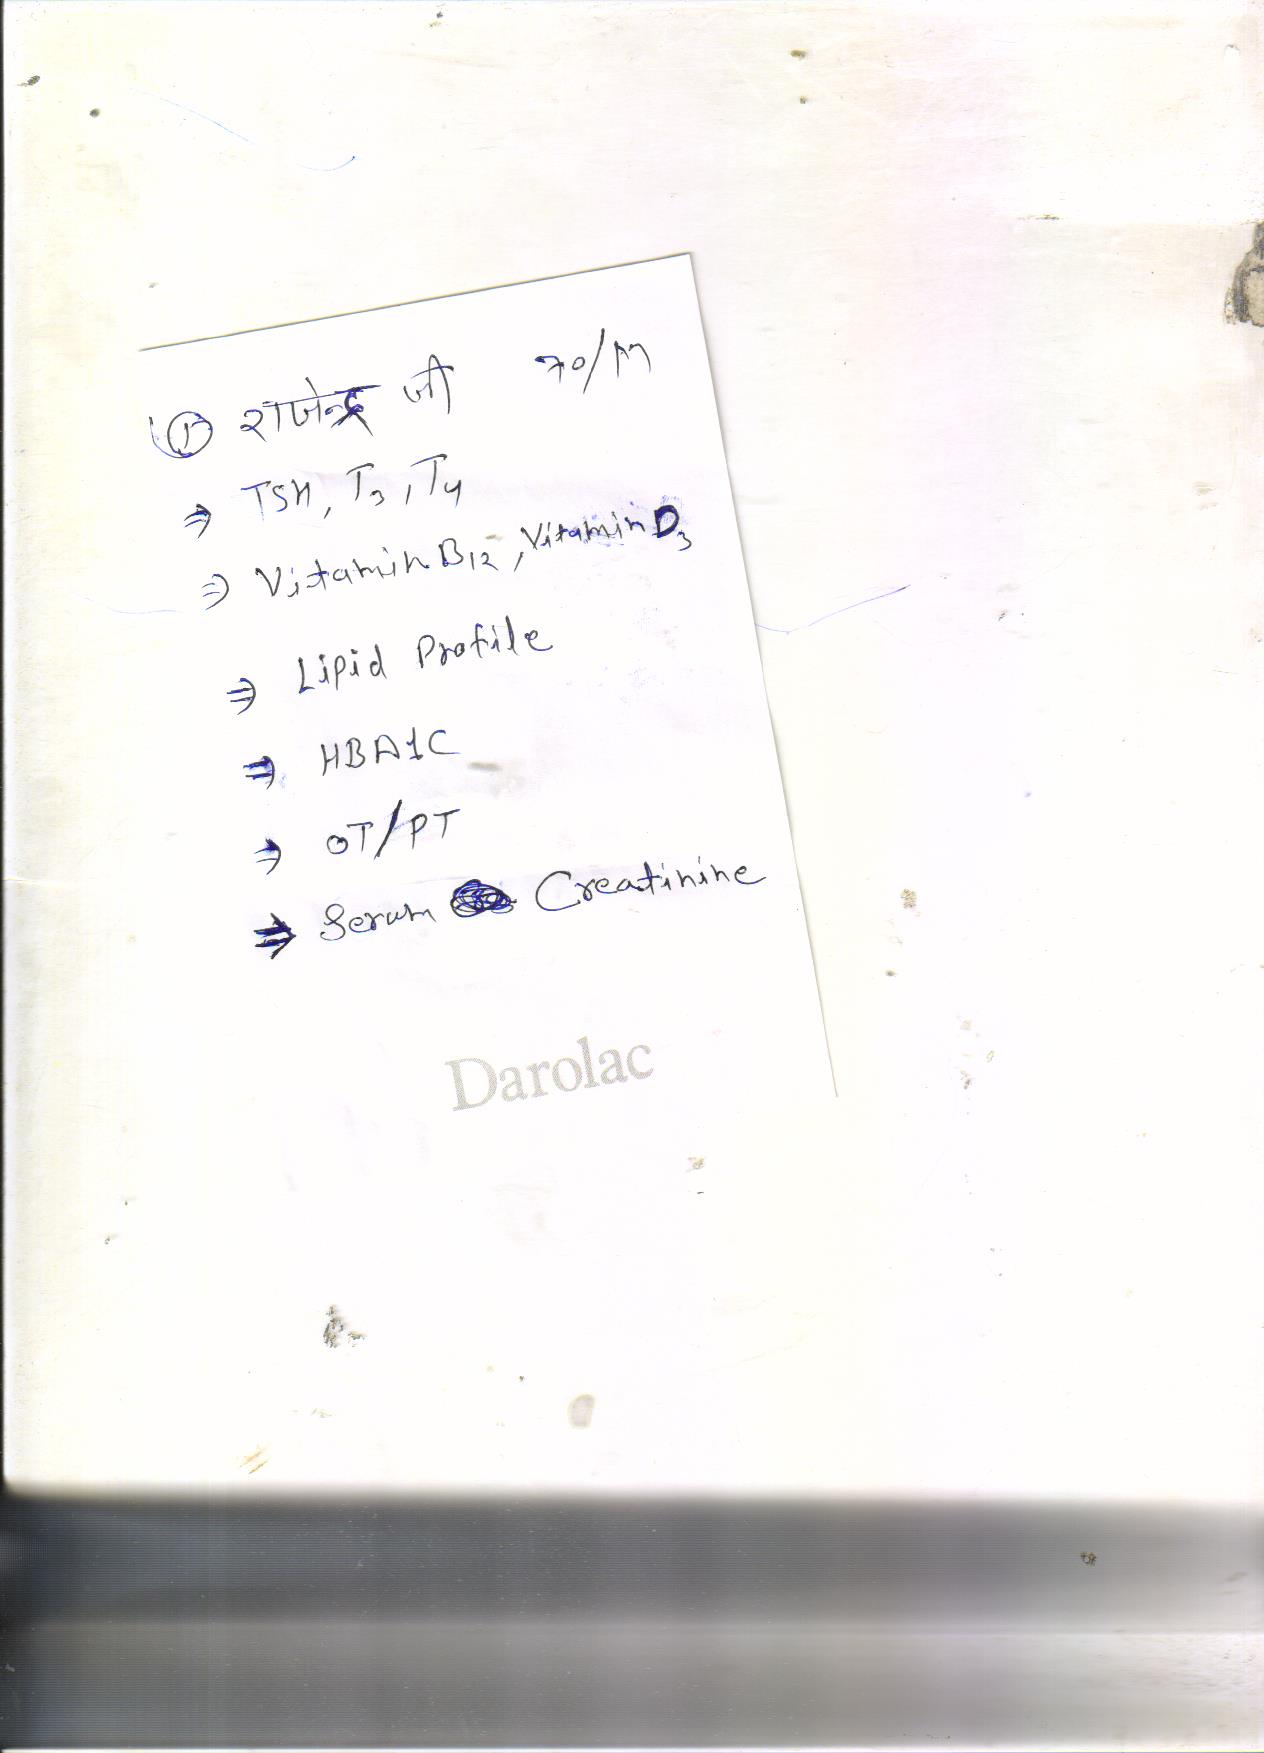 ① राजेन्द्र जी 70/M
⇒ TSH, T3, T4
⇒ Vitamin B12, Vitamin D3
⇒ Lipid Profile
⇒ HBA1C
⇒ OT/PT
⇒ Serum Creatinine
Darolac